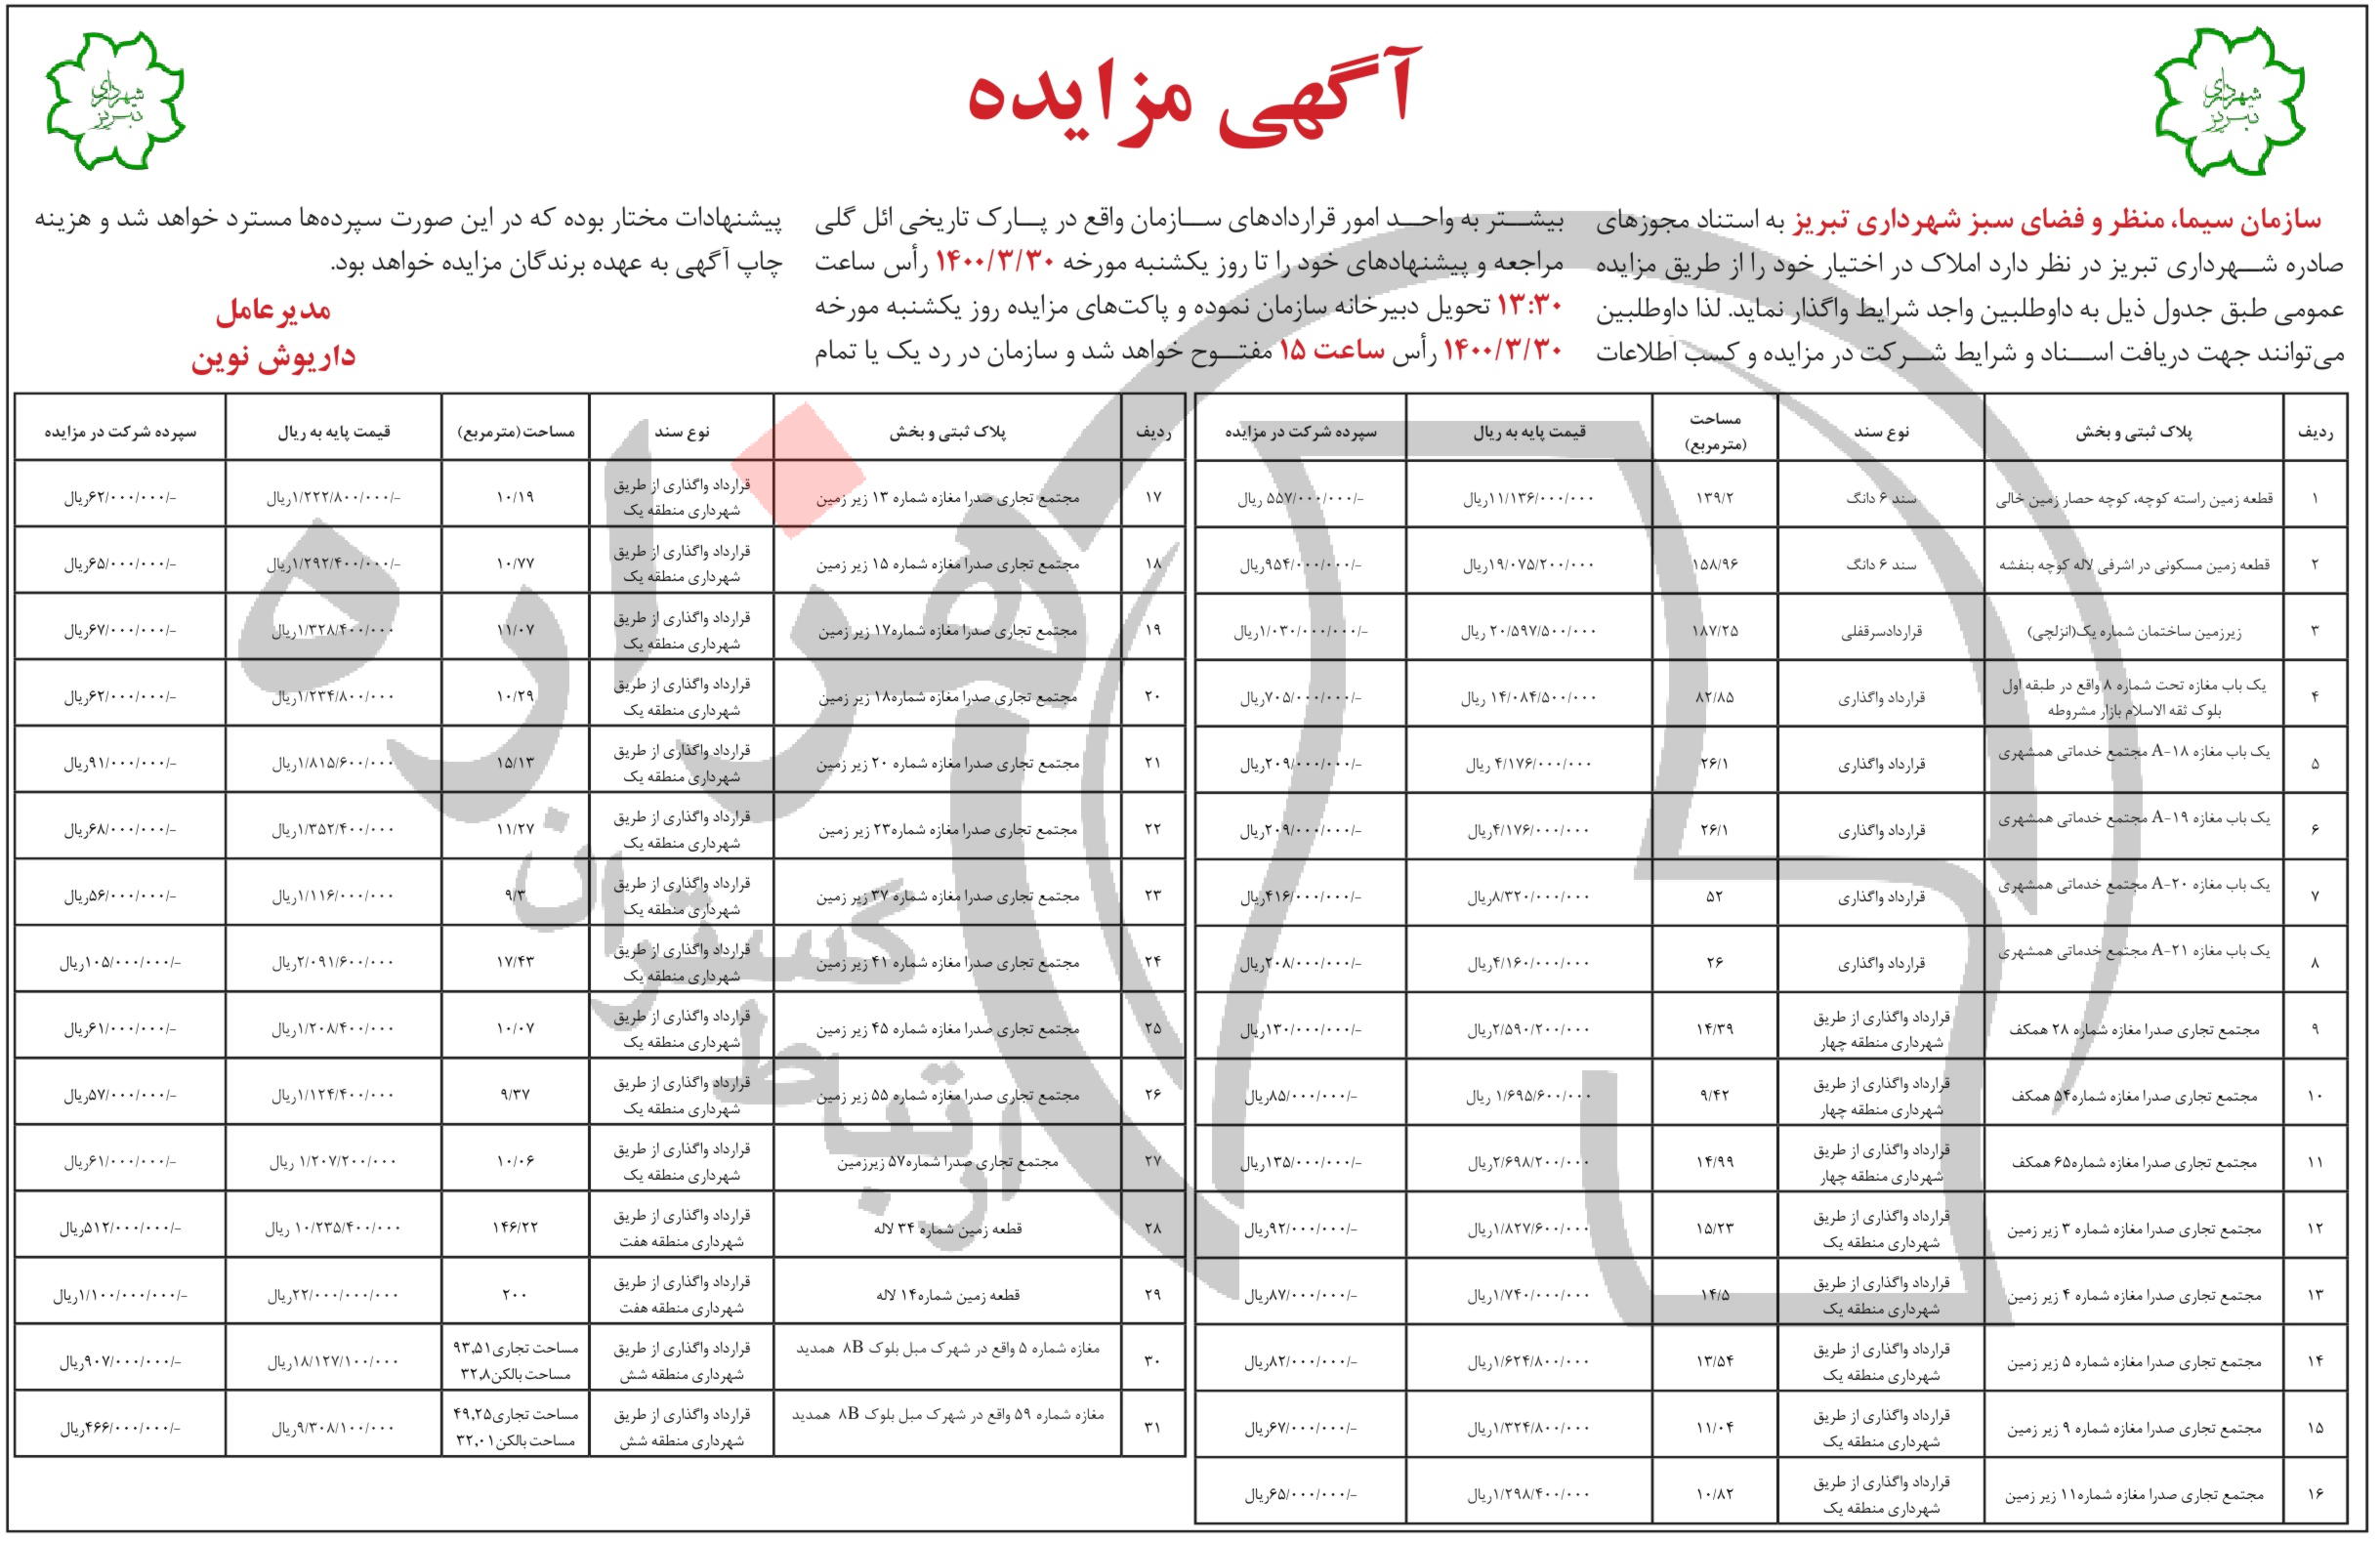 آگهی مزایده
شهرداری
تبریز
شهرداری
تبریز
سازمان سیما، منظر و فضای سبز شهرداری تبریز به استناد مجوزهای
صادره شهرداری تبریز در نظر دارد املاک در اختیار خود را از طریق مزایده
عمومی طبق جدول ذیل به داوطلبین واجد شرایط واگذار نماید. لذا داوطلبین
می‌توانند جهت دریافت اسناد و شرایط شرکت در مزایده و کسب اطلاعات
بیشتر به واحد امور قراردادهای سازمان واقع در پارک تاریخی ائل گلی
مراجعه و پیشنهادهای خود را تا روز یکشنبه مورخه ۱۴۰۰/۳/۳۰ رأس ساعت
۱۳:۳۰ تحویل دبیرخانه سازمان نموده و پاکت‌های مزایده روز یکشنبه مورخه
۱۴۰۰/۳/۳۰ رأس ساعت ۱۵ مفتوح خواهد شد و سازمان در رد یک یا تمام
پیشنهادات مختار بوده که در این صورت سپرده‌ها مسترد خواهد شد و هزینه
چاپ آگهی به عهده برندگان مزایده خواهد بود.
مدیرعامل
داریوش نوین
ردیف پلاک ثبتی و بخش نوع سند مساحت (مترمربع) قیمت پایه به ریال سپرده شرکت در مزایده
۱ قطعه زمین راسته کوچه، کوچه حصار زمین خالی سند ۶ دانگ ۱۳۹/۲ ۱۱/۱۳۶/۰۰۰/۰۰۰ریال ۵۵۷/۰۰۰/۰۰۰/- ریال
۲ قطعه زمین مسکونی در اشرفی لاله کوچه بنفشه سند ۶ دانگ ۱۵۸/۹۶ ۱۹/۰۷۵/۲۰۰/۰۰۰ریال ۹۵۴/۰۰۰/۰۰۰/-ریال
۳ زیرزمین ساختمان شماره یک(انزلچی) قراردادسرقفلی ۱۸۷/۲۵ ۲۰/۵۹۷/۵۰۰/۰۰۰ ریال ۱/۰۳۰/۰۰۰/۰۰۰/-ریال
۴ یک باب مغازه تحت شماره ۸ واقع در طبقه اول بلوک ثقه الاسلام بازار مشروطه قرارداد واگذاری ۸۲/۸۵ ۱۴/۰۸۴/۵۰۰/۰۰۰ ریال ۷۰۵/۰۰۰/۰۰۰/-ریال
۵ یک باب مغازه A-۱۸ مجتمع خدماتی همشهری قرارداد واگذاری ۲۶/۱ ۴/۱۷۶/۰۰۰/۰۰۰ ریال ۲۰۹/۰۰۰/۰۰۰/-ریال
۶ یک باب مغازه A-۱۹ مجتمع خدماتی همشهری قرارداد واگذاری ۲۶/۱ ۴/۱۷۶/۰۰۰/۰۰۰ریال ۲۰۹/۰۰۰/۰۰۰/-ریال
۷ یک باب مغازه A-۲۰ مجتمع خدماتی همشهری قرارداد واگذاری ۵۲ ۸/۳۲۰/۰۰۰/۰۰۰ریال ۴۱۶/۰۰۰/۰۰۰/-ریال
۸ یک باب مغازه A-۲۱ مجتمع خدماتی همشهری قرارداد واگذاری ۲۶ ۴/۱۶۰/۰۰۰/۰۰۰ریال ۲۰۸/۰۰۰/۰۰۰/-ریال
۹ مجتمع تجاری صدرا مغازه شماره ۲۸ همکف قرارداد واگذاری از طریق شهرداری منطقه چهار ۱۴/۳۹ ۲/۵۹۰/۲۰۰/۰۰۰ریال ۱۳۰/۰۰۰/۰۰۰/-ریال
۱۰ مجتمع تجاری صدرا مغازه شماره۵۴ همکف قرارداد واگذاری از طریق شهرداری منطقه چهار ۹/۴۲ ۱/۶۹۵/۶۰۰/۰۰۰ ریال ۸۵/۰۰۰/۰۰۰/-ریال
۱۱ مجتمع تجاری صدرا مغازه شماره۶۵ همکف قرارداد واگذاری از طریق شهرداری منطقه چهار ۱۴/۹۹ ۲/۶۹۸/۲۰۰/۰۰۰ریال ۱۳۵/۰۰۰/۰۰۰/-ریال
۱۲ مجتمع تجاری صدرا مغازه شماره ۳ زیر زمین قرارداد واگذاری از طریق شهرداری منطقه یک ۱۵/۲۳ ۱/۸۲۷/۶۰۰/۰۰۰ریال ۹۲/۰۰۰/۰۰۰/-ریال
۱۳ مجتمع تجاری صدرا مغازه شماره ۴ زیر زمین قرارداد واگذاری از طریق شهرداری منطقه یک ۱۴/۵ ۱/۷۴۰/۰۰۰/۰۰۰ریال ۸۷/۰۰۰/۰۰۰/-ریال
۱۴ مجتمع تجاری صدرا مغازه شماره ۵ زیر زمین قرارداد واگذاری از طریق شهرداری منطقه یک ۱۳/۵۴ ۱/۶۲۴/۸۰۰/۰۰۰ریال ۸۲/۰۰۰/۰۰۰/-ریال
۱۵ مجتمع تجاری صدرا مغازه شماره ۹ زیر زمین قرارداد واگذاری از طریق شهرداری منطقه یک ۱۱/۰۴ ۱/۳۲۴/۸۰۰/۰۰۰ریال ۶۷/۰۰۰/۰۰۰/-ریال
۱۶ مجتمع تجاری صدرا مغازه شماره۱۱ زیر زمین قرارداد واگذاری از طریق شهرداری منطقه یک ۱۰/۸۲ ۱/۲۹۸/۴۰۰/۰۰۰ریال ۶۵/۰۰۰/۰۰۰/-ریال
ردیف پلاک ثبتی و بخش نوع سند مساحت(مترمربع) قیمت پایه به ریال سپرده شرکت در مزایده
۱۷ مجتمع تجاری صدرا مغازه شماره ۱۳ زیر زمین قرارداد واگذاری از طریق شهرداری منطقه یک ۱۰/۱۹ ۱/۲۲۲/۸۰۰/۰۰۰/-ریال ۶۲/۰۰۰/۰۰۰/-ریال
۱۸ مجتمع تجاری صدرا مغازه شماره ۱۵ زیر زمین قرارداد واگذاری از طریق شهرداری منطقه یک ۱۰/۷۷ ۱/۲۹۲/۴۰۰/۰۰۰/-ریال ۶۵/۰۰۰/۰۰۰/-ریال
۱۹ مجتمع تجاری صدرا مغازه شماره۱۷ زیر زمین قرارداد واگذاری از طریق شهرداری منطقه یک ۱۱/۰۷ ۱/۳۲۸/۴۰۰/۰۰۰ریال ۶۷/۰۰۰/۰۰۰/-ریال
۲۰ مجتمع تجاری صدرا مغازه شماره۱۸ زیر زمین قرارداد واگذاری از طریق شهرداری منطقه یک ۱۰/۲۹ ۱/۲۳۴/۸۰۰/۰۰۰ریال ۶۲/۰۰۰/۰۰۰/-ریال
۲۱ مجتمع تجاری صدرا مغازه شماره ۲۰ زیر زمین قرارداد واگذاری از طریق شهرداری منطقه یک ۱۵/۱۳ ۱/۸۱۵/۶۰۰/۰۰۰ریال ۹۱/۰۰۰/۰۰۰/-ریال
۲۲ مجتمع تجاری صدرا مغازه شماره۲۳ زیر زمین قرارداد واگذاری از طریق شهرداری منطقه یک ۱۱/۲۷ ۱/۳۵۲/۴۰۰/۰۰۰ریال ۶۸/۰۰۰/۰۰۰/-ریال
۲۳ مجتمع تجاری صدرا مغازه شماره ۳۷ زیر زمین قرارداد واگذاری از طریق شهرداری منطقه یک ۹/۳ ۱/۱۱۶/۰۰۰/۰۰۰ریال ۵۶/۰۰۰/۰۰۰/-ریال
۲۴ مجتمع تجاری صدرا مغازه شماره ۴۱ زیر زمین قرارداد واگذاری از طریق شهرداری منطقه یک ۱۷/۴۳ ۲/۰۹۱/۶۰۰/۰۰۰ریال ۱۰۵/۰۰۰/۰۰۰/-ریال
۲۵ مجتمع تجاری صدرا مغازه شماره ۴۵ زیر زمین قرارداد واگذاری از طریق شهرداری منطقه یک ۱۰/۰۷ ۱/۲۰۸/۴۰۰/۰۰۰ریال ۶۱/۰۰۰/۰۰۰/-ریال
۲۶ مجتمع تجاری صدرا مغازه شماره ۵۵ زیر زمین قرارداد واگذاری از طریق شهرداری منطقه یک ۹/۳۷ ۱/۱۲۴/۴۰۰/۰۰۰ریال ۵۷/۰۰۰/۰۰۰/-ریال
۲۷ مجتمع تجاری صدرا شماره۵۷ زیرزمین قرارداد واگذاری از طریق شهرداری منطقه یک ۱۰/۰۶ ۱/۲۰۷/۲۰۰/۰۰۰ ریال ۶۱/۰۰۰/۰۰۰/-ریال
۲۸ قطعه زمین شماره ۳۴ لاله قرارداد واگذاری از طریق شهرداری منطقه هفت ۱۴۶/۲۲ ۱۰/۲۳۵/۴۰۰/۰۰۰ ریال ۵۱۲/۰۰۰/۰۰۰/-ریال
۲۹ قطعه زمین شماره۱۴ لاله قرارداد واگذاری از طریق شهرداری منطقه هفت ۲۰۰ ۲۲/۰۰۰/۰۰۰/۰۰۰ریال ۱/۱۰۰/۰۰۰/۰۰۰/-ریال
۳۰ مغازه شماره ۵ واقع در شهرک مبل بلوک ۸B همدید قرارداد واگذاری از طریق شهرداری منطقه شش مساحت تجاری۹۳,۵۱ مساحت بالکن۳۲,۸ ۱۸/۱۲۷/۱۰۰/۰۰۰ریال ۹۰۷/۰۰۰/۰۰۰/-ریال
۳۱ مغازه شماره ۵۹ واقع در شهرک مبل بلوک ۸B همدید قرارداد واگذاری از طریق شهرداری منطقه شش مساحت تجاری۴۹,۲۵ مساحت بالکن۳۲,۰۱ ۹/۳۰۸/۱۰۰/۰۰۰ریال ۴۶۶/۰۰۰/۰۰۰/-ریال
هزاره
گستران
ارتباط